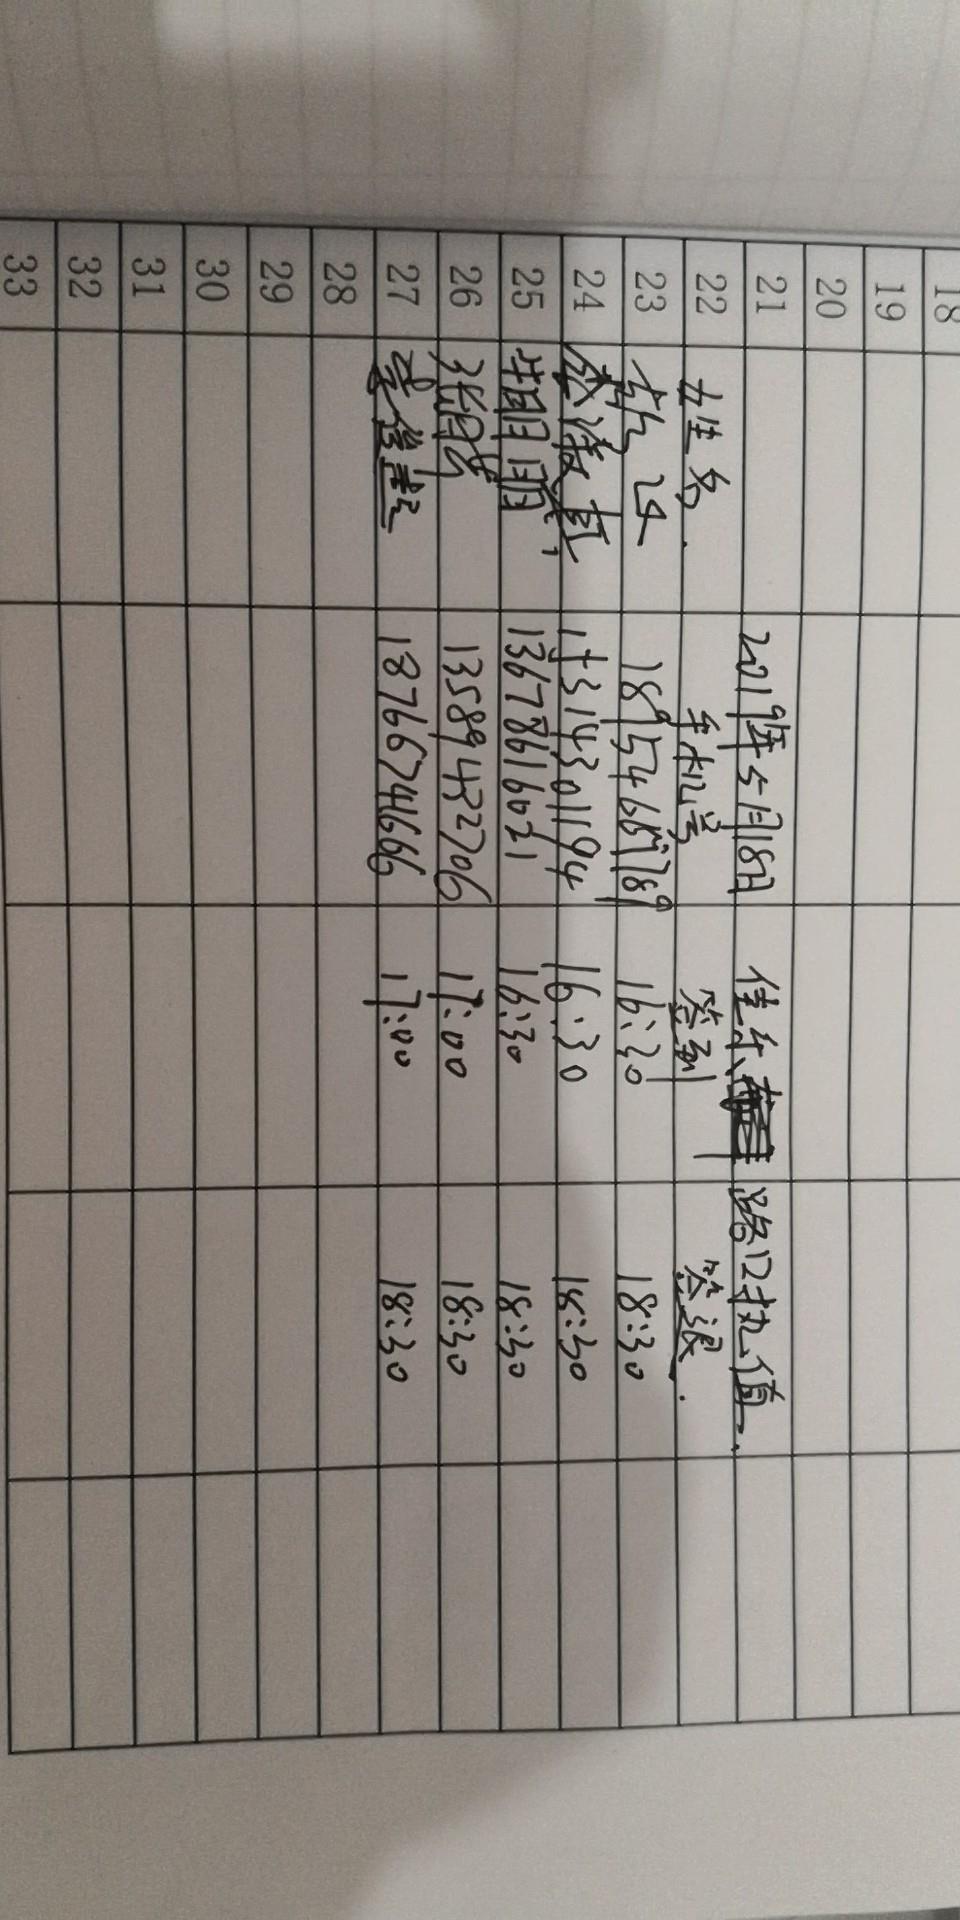 18
19
20
21 2019年5月18日 佳乐 路口执值.
22 姓名. 手机号 签到 签退.
23 18954668789 16:30 18:30
24 17314301194 16:30 18:30
25 13678616021 16:30 18:30
26 13589432706 17:00 18:30
27 18766746666 17:00 18:30
28
29
30
31
32
33